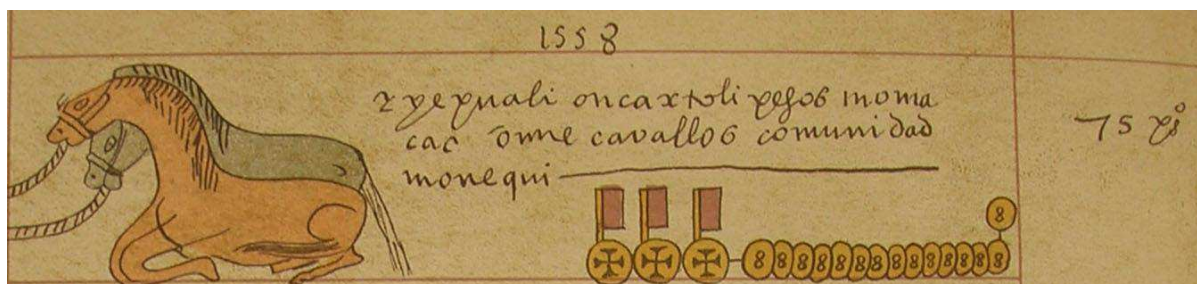 1558
yyepuali oncaxtoli pesos moma
cac õme cavallos comunidad
monequi
75 pºs